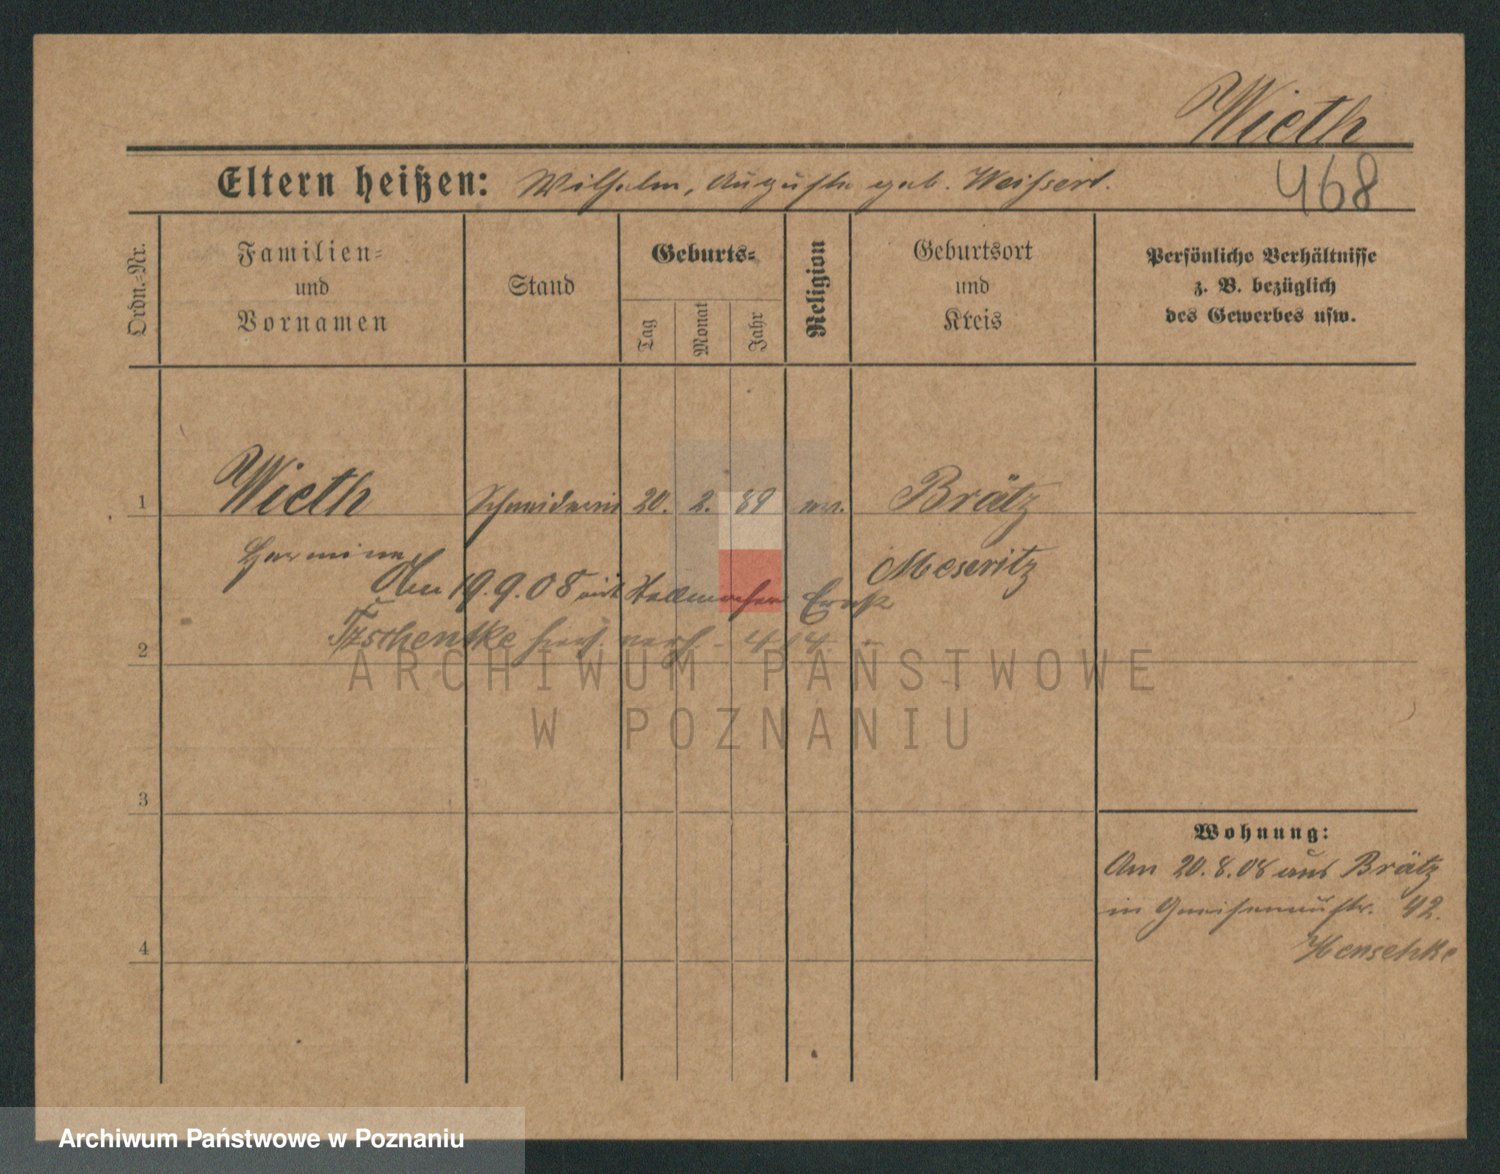 Wieth
Eltern heißen: Wilhelm, Auguste geb. Weißert.
468
Ordn.-Nr.
Familien-
und
Vornamen
Stand
Geburts-
Tag
Monat
Jahr
Religion
Geburtsort
und
Kreis
Persönliche Verhältnisse
z. B. bezüglich
des Gewerbes usw.
1
Wieth
Schneiderin
20.
2.
89
ev.
Brätz
Hermine
Meseritz
Am 19.9.08 mit Stellmacher Ernst
Tzschentke
2
ARCHIWUM PAŃSTWOWE
W POZNANIU
3
Wohnung:
Am 20.8.08 aus Brätz
in Gneisenaustr. 42.
Henschke
4
Archiwum Państwowe w Poznaniu